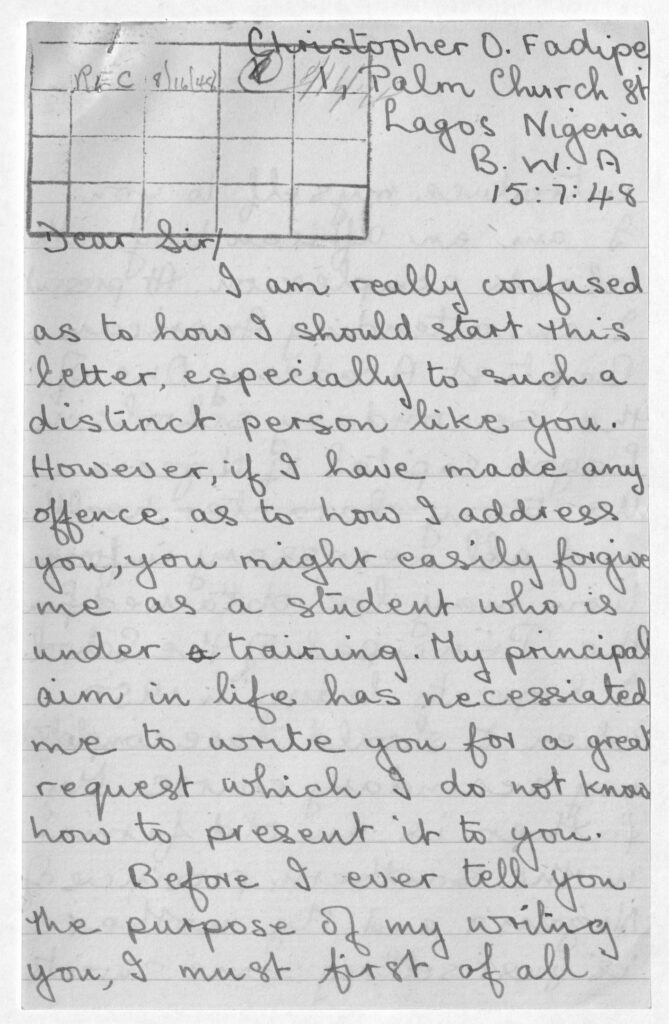 Christopher O. Fadipe
REC 8/16/48
1, Palm Church St
Lagos Nigeria
B. W. A
15:7:48
Dear Sir/
I am really confused
as to how I should start this
letter, especially to such a
distinct person like you.
However, if I have made any
offence as to how I address
you, you might easily forgive
me as a student who is
under a training. My principal
aim in life has necessiated
me to write you for a great
request which I do not know
how to present it to you.
Before I ever tell you
the purpose of my writing
you, I must first of all